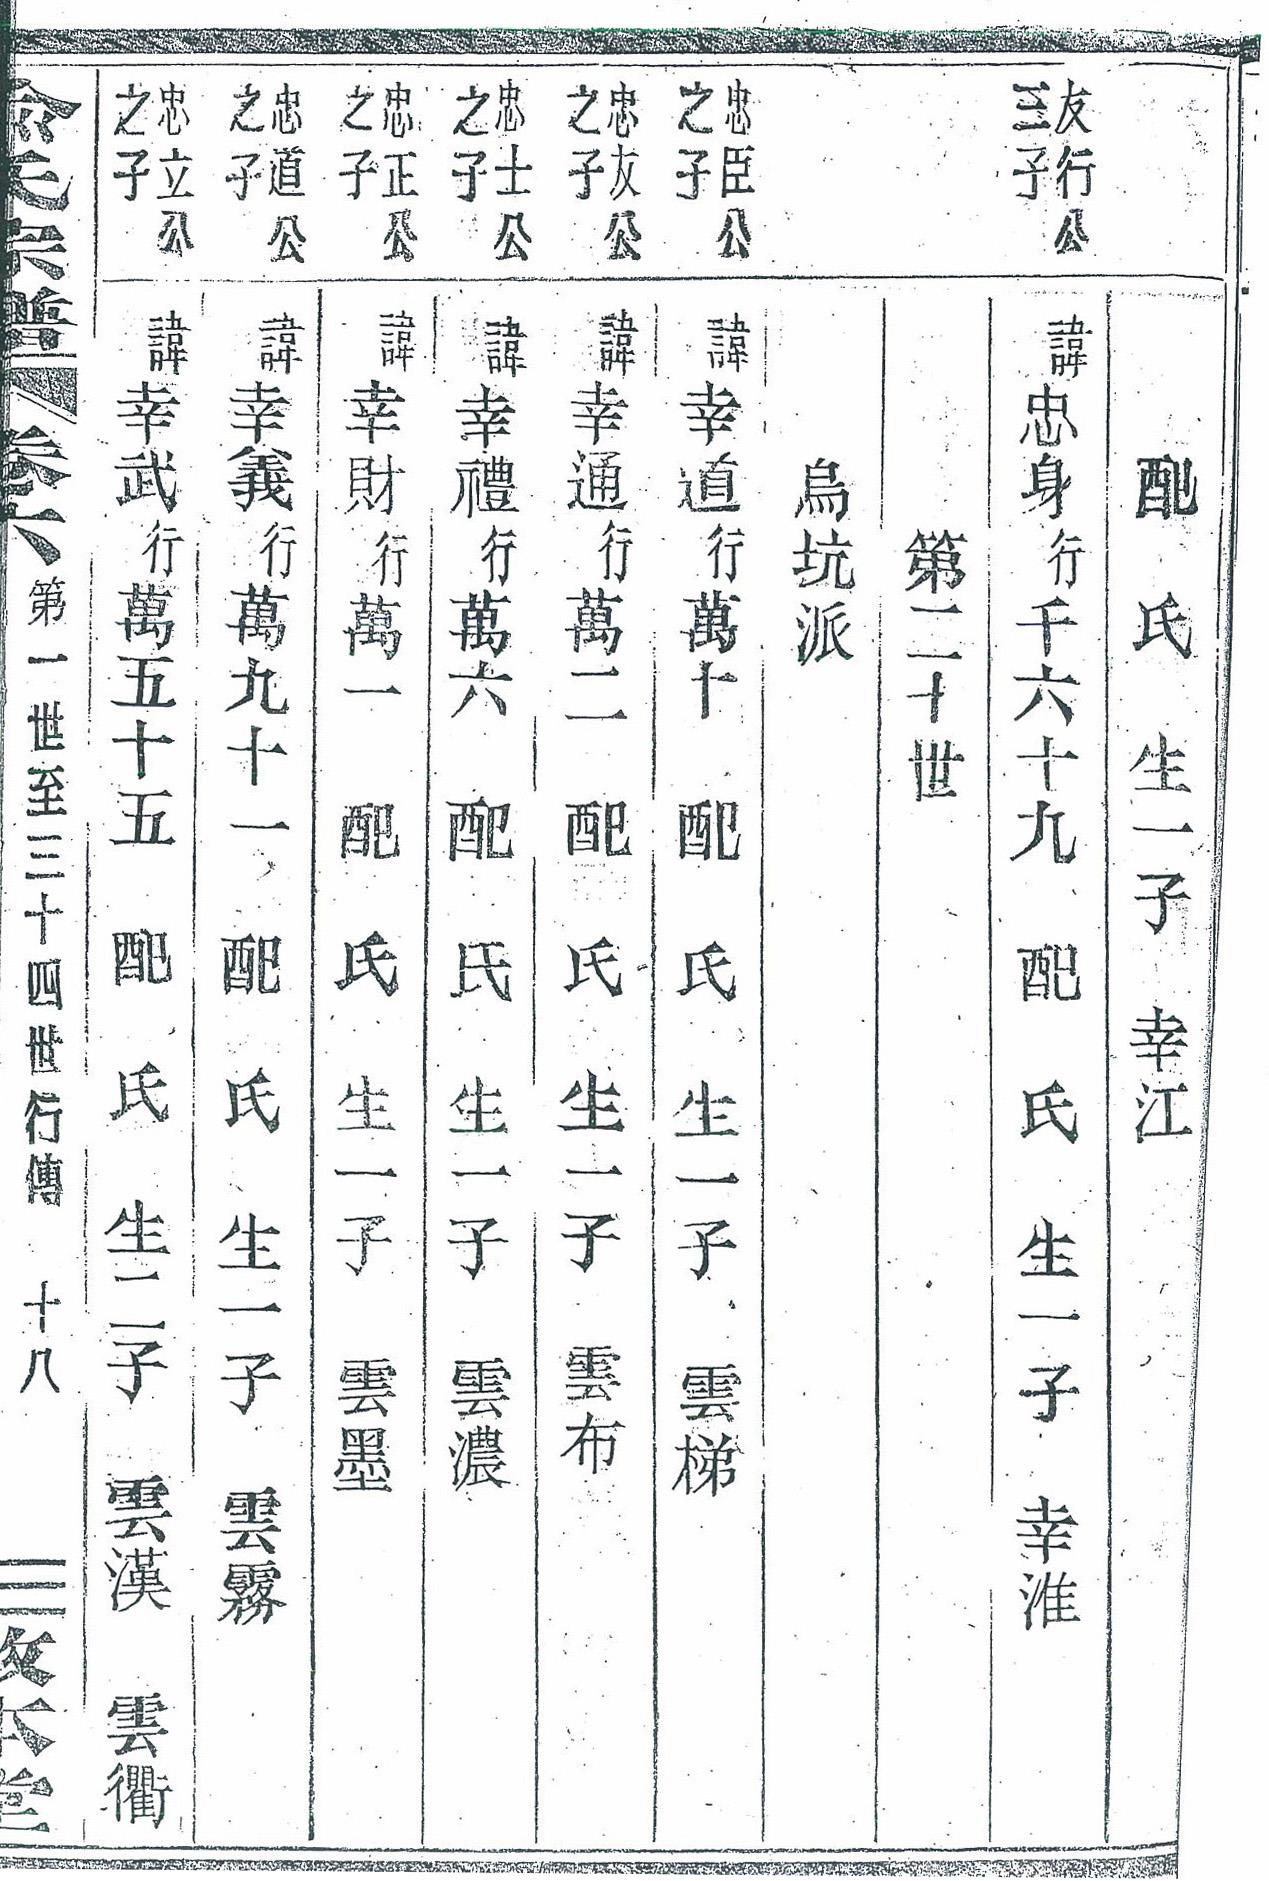 配　氏　生一子　幸江
友行公
三子
諱忠身行千六十九　配　氏　生一子　幸淮
第二十世
烏坑派
忠臣公
之子
諱幸道行萬十　配　氏　生一子　雲梯
忠友公
之子
諱幸通行萬二　配　氏　生一子　雲布
忠士公
之子
諱幸禮行萬六　配　氏　生一子　雲濃
忠正公
之子
諱幸財行萬一　配　氏　生一子　雲墨
忠道公
之子
諱幸義行萬九十一　配　氏　生一子　雲霧
忠立公
之子
諱幸武行萬五十五　配　氏　生二子　雲漢　雲衢
氏宗譜　卷六　第一世至三十四世行傳　十八　本堂